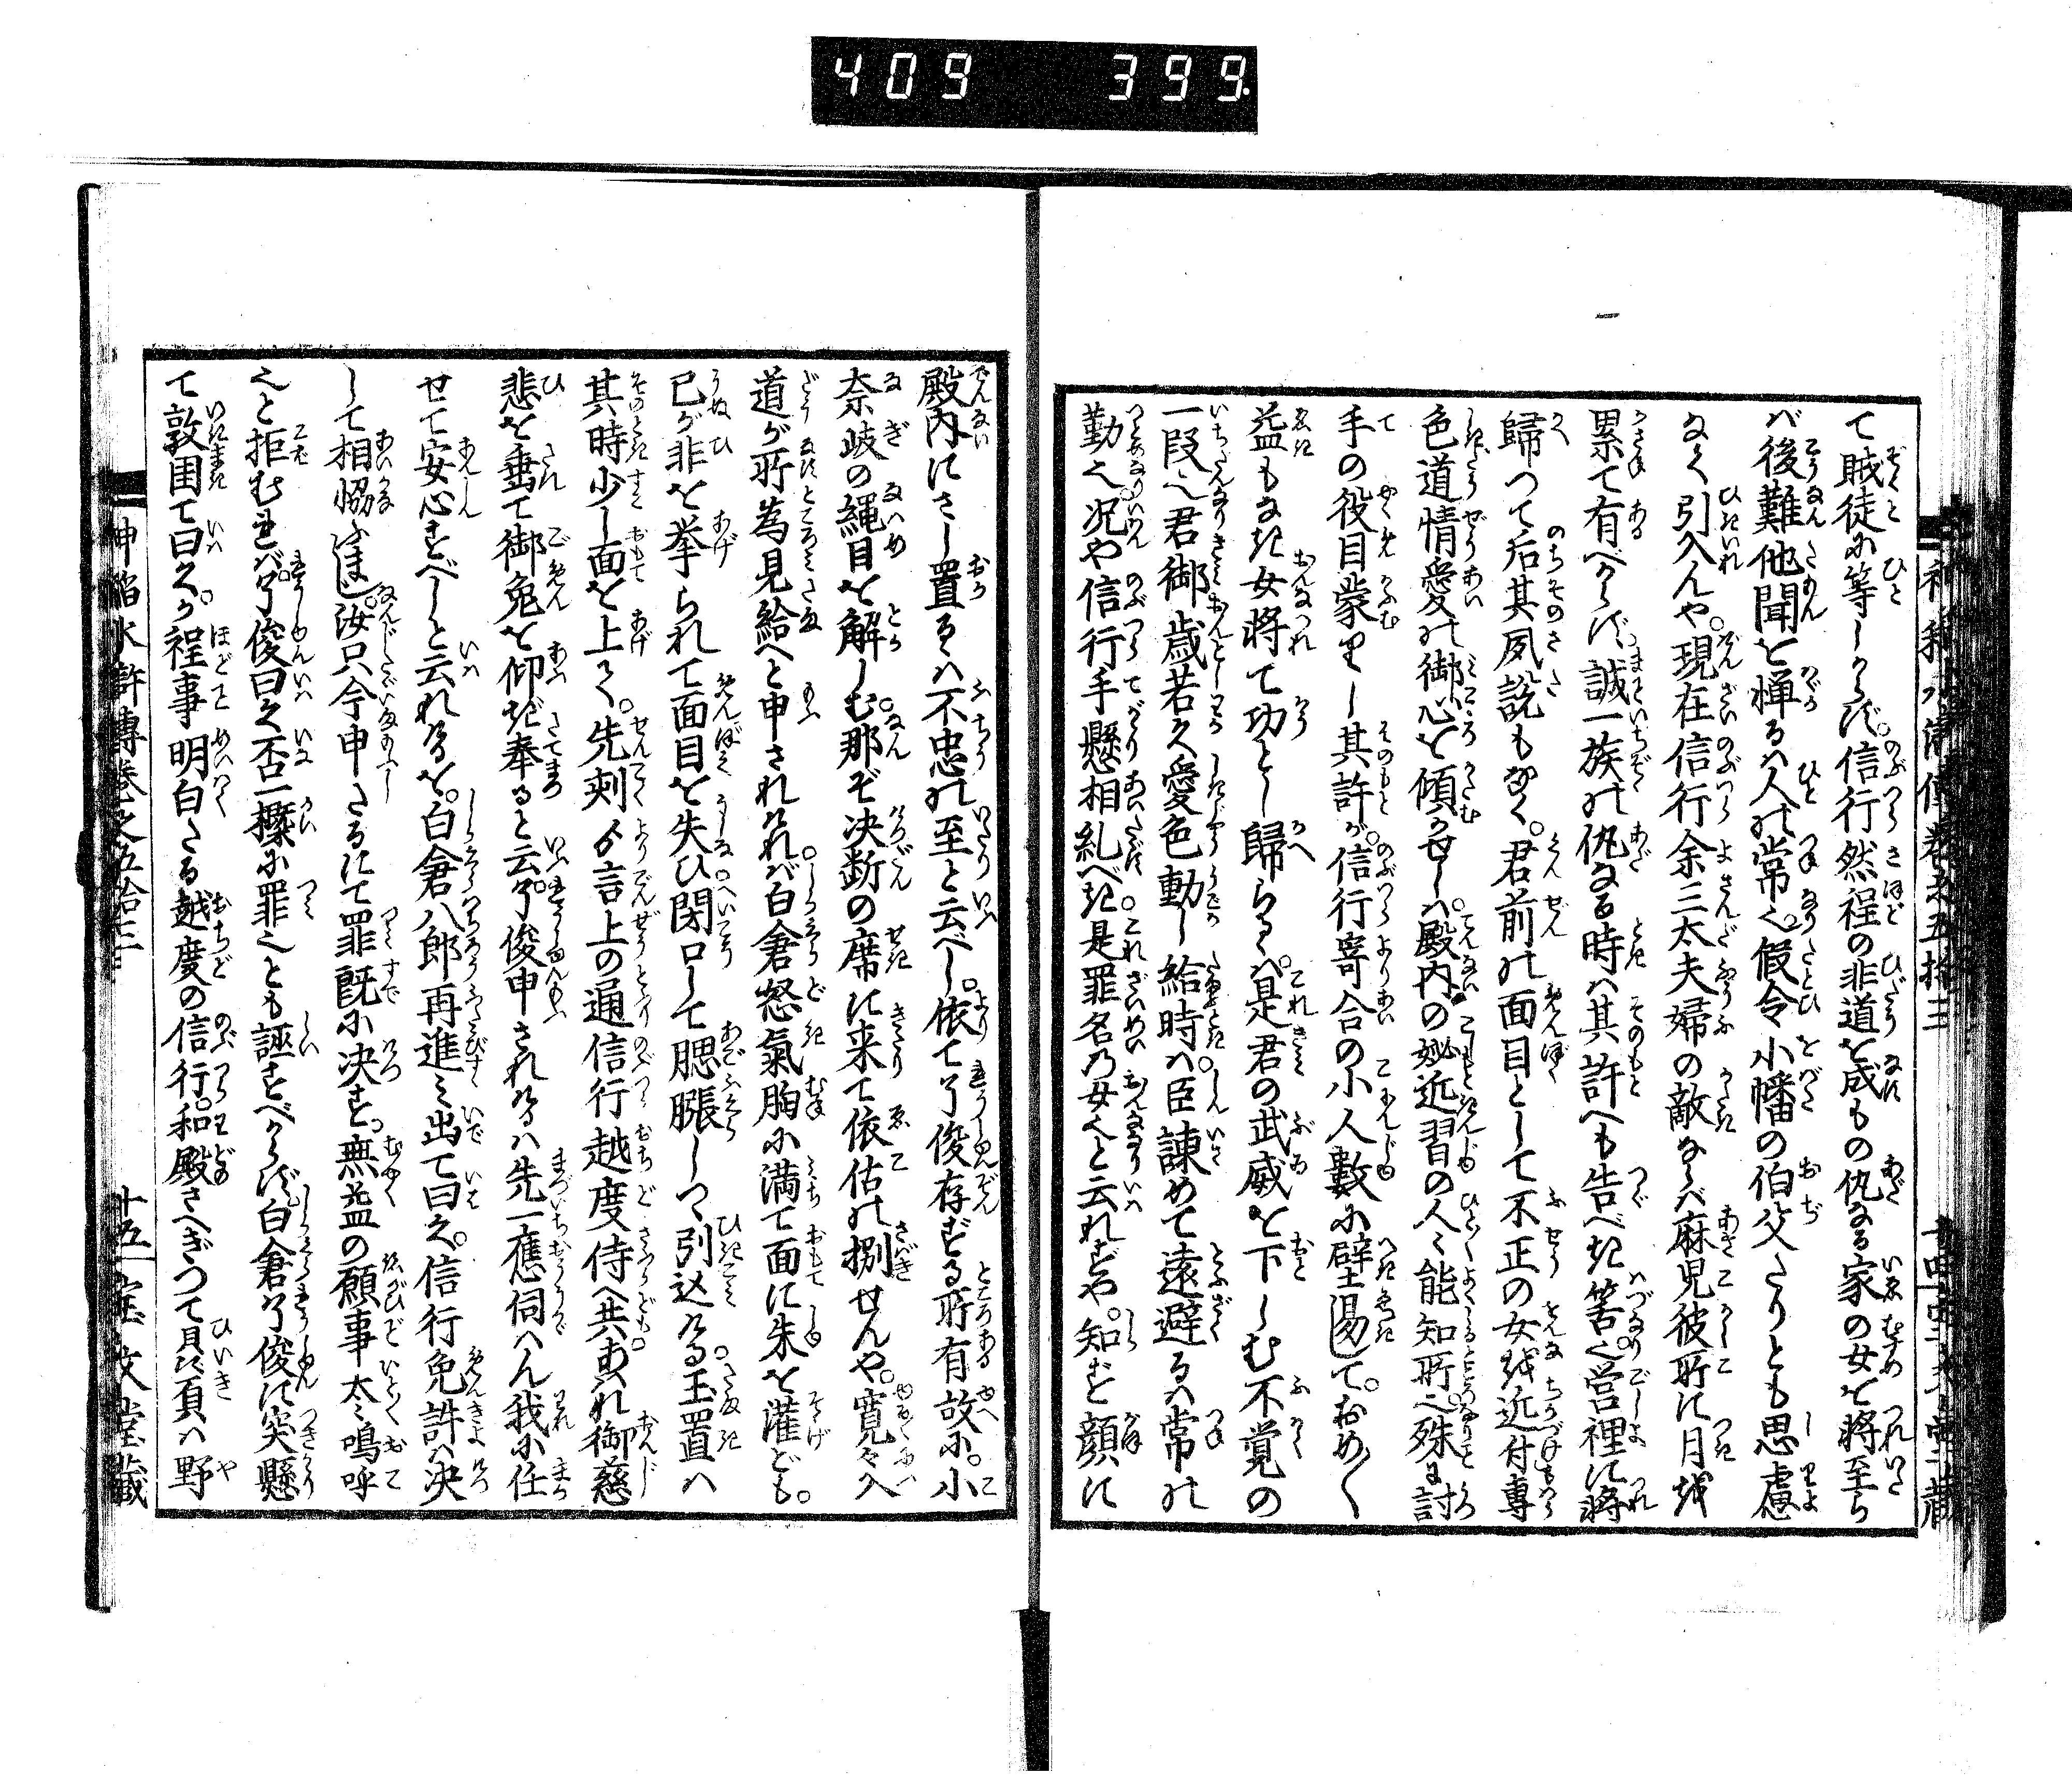 409 399.
て賊徒に等しからず。信行然程の非道を成もの仇なる家の女を将至ら
ば後難他聞を憚るは人の常也。假令小幡の伯父たりとも思慮
なく引入んや。現在信行余三太夫婦の敵ならば麻児彼所に月越
累て有べからず。誠一族の仇なる時は其許へも告べき筈也。営裡に将
歸つて后其夙説もなく。君前の面目として不正の女越近付専
色道情愛の御心を傾かせしは。殿内の妼近習の人々能知所也。殊に討
手の役目蒙りし其許が。信行寄合の小人數に壁易して。おめ〳〵
益もなき女将て功とし歸らるゝは。是君の武威を下しむ不覚の
一段也君御歳若く愛色動し給時は。臣諌めて遠避るは常の
勤也況や信行手懸相糺べき。是罪名乃女也と云れずや。知ず顔に
殿内にさし置るゝは不忠の至と云べし。依て了俊存ずる所有故に。小
奈岐の縄目を解しむ。那ぞ决断の席に来て依估の捌せんや。寛々入
道が所為見給へと申されければ。白倉怒氣胸に満て面に朱を灌ども。
已が非を挙られて面目を失ひ閉口して腮脹しつゝ引込ける。玉置は
其時少し面を上て。先刻ゟ言上の通信行越度侍へ共。あはれ御慈
悲を垂て御免を仰ぎ奉ると云。了俊申されけるは先一應伺はん我に任
せて安心すべしと云れけるを。白倉八郎再進み出て曰く。信行免許は决
して相恊ふまじ。汝只今申たるにて罪既に决す。無益の願事太々嗚呼
也と拒むれば。了俊曰く否一攥に罪也とも誣ずべからず。白倉了俊に突懸
て敦圉て曰く。か程事明白たる越度の信行。和殿さへぎつて贔屓は野
神稲水滸傳巻之五拾三
十五
宝文堂藏